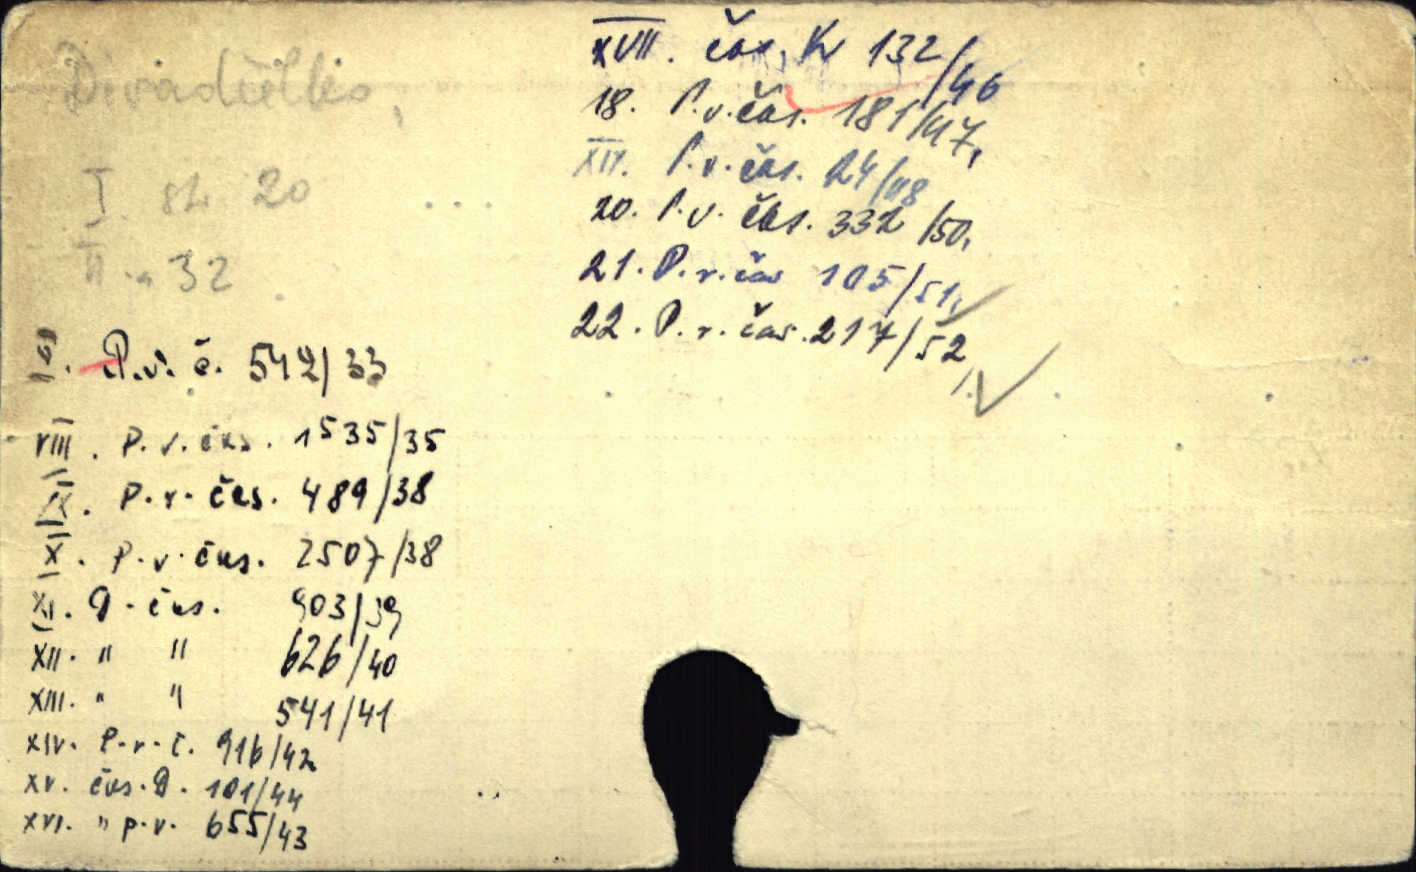 Divadélko,
I. st. 20
II " 32
P.v. č. 542/33
VIII. P.v. čas. 1535/35
IX. P.v. čas. 489/38
X. P.v. čas. 2507/38
XI. D. čas. 903/39
XII. " " 626/40
XIII. " " 541/41
XIV. P.v.č. 916/42
XV. čas. D. 101/44
XVI. " p.v. 655/43
XVII. čas. Kv 132/46
18. P.v.čas. 181/47,
XIX. P.v. čas. 24/48
20. P.v. čas. 332/50,
21. P.v. čas 105/51,
22. P.v. čas. 217/52,